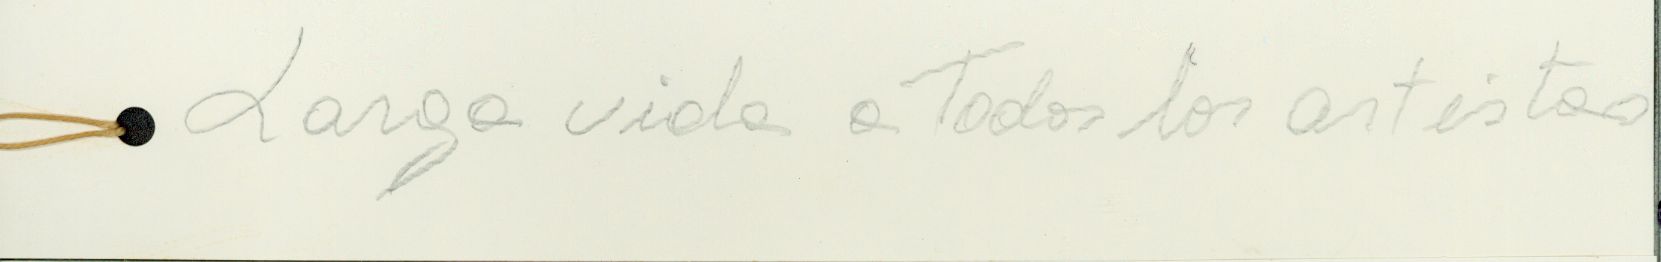 Larga vida a Todos los artistas